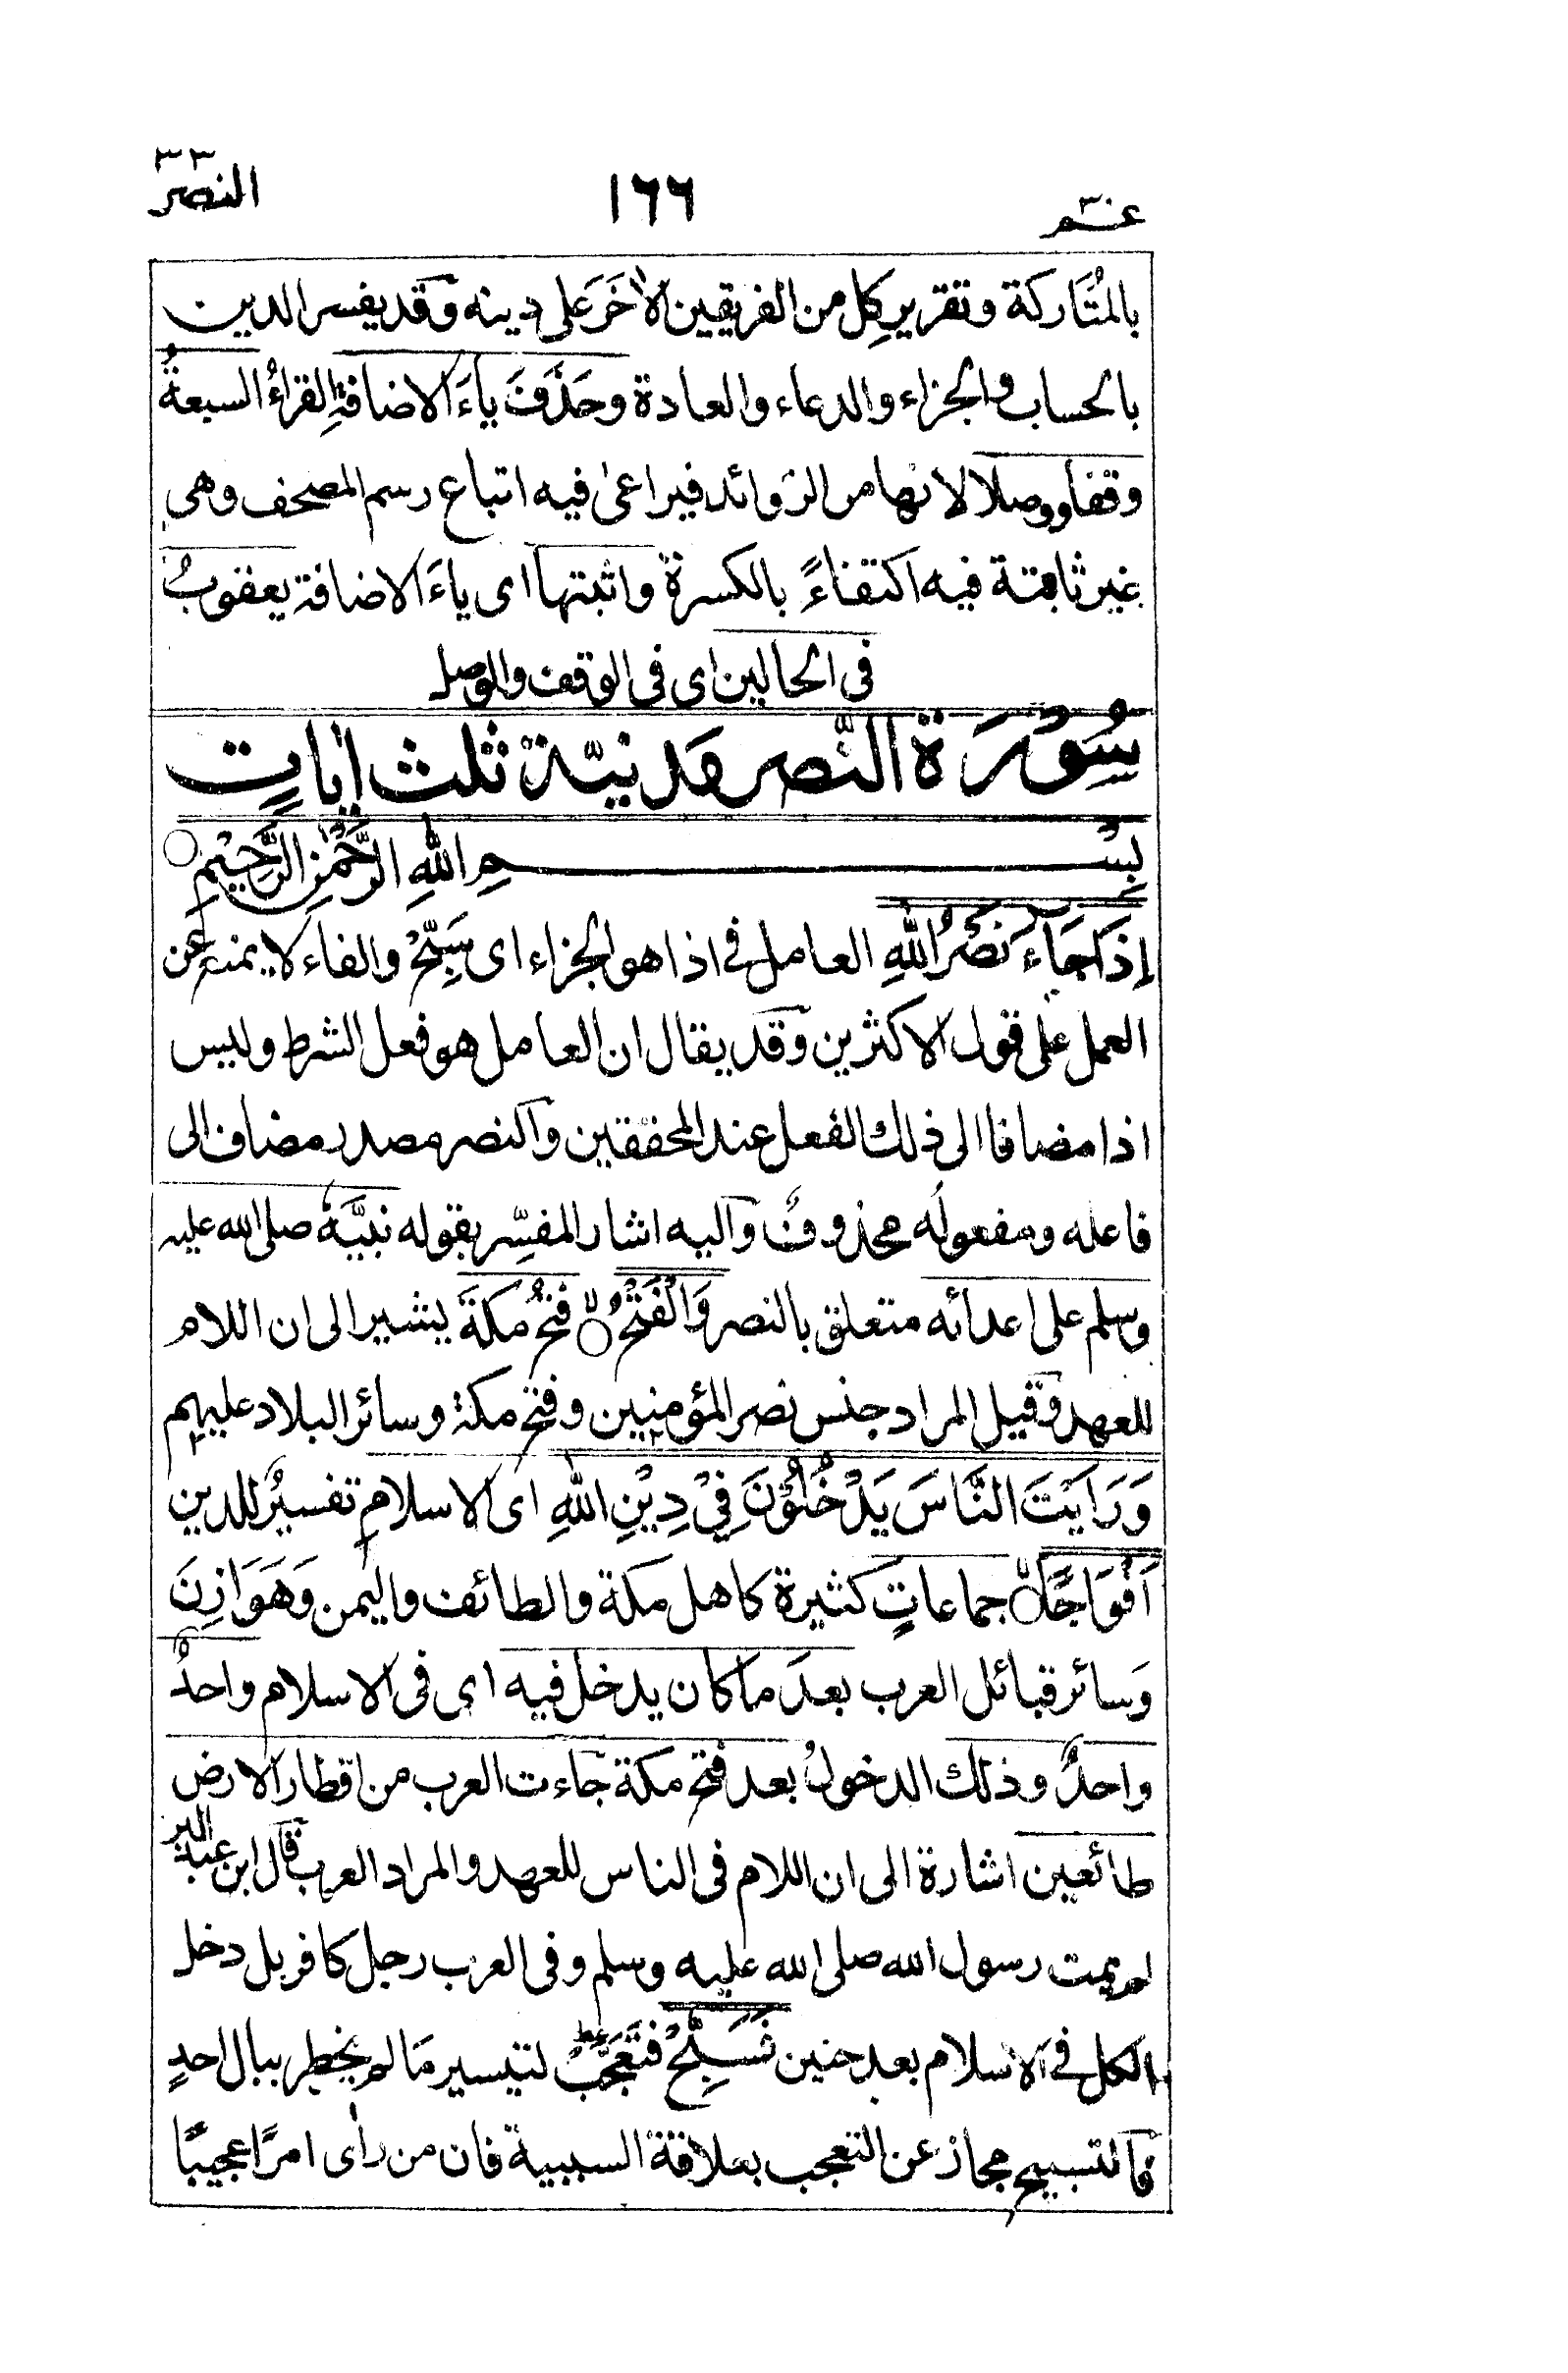 عـم ٣٠
١٦٦
النصر
بالمُتَاركة وتقرير كِل من الفريقين الاٰخَرَ على دينه وقد يفسر الدين
بالحساب والجزاء والدعاء والعادة وحَذَفَ ياءَ الاضافةِ القراءُ السبعةُ
وقفا ووصلا لانها من الزوائد فيراعىٰ فيه اتباع رسم المصحف وهى
غير ثابتة فيه اكتفاءً بالكسرة واثبتها اى ياءَ الاضافة يعقوبُ
فى الحالين اى فى الوقف والوصل
سُوْرَة النَّصر مدنيّة ثلث اٰياتٍ
بِسْـــمِ اللهِ الرَّحْمٰنِ الرَّحِيْمِ ○
إِذَا جَآءَ نَصْرُ اللهِ العامل فى اذا هو الجزاء اى سَبِّحْ والفاء لا يمنع عن
العمل على قول الاكثرين وقد يقال ان العامل هو فعل الشرط وليس
اذا مضافا الى ذلك الفعل عند المحققين والنصر مصدر مضاف الى
فاعله ومفعولُه محذوفٌ واليه اشار المفسِّر بقوله نبيَّهٗ صلى الله عليه
وسلم على اعدائه متعلق بالنصر وَالْفَتْحُ ○ لا فتحُ مكةَ يشير الى ان اللام
للعهد وقيل المراد جنس نصر المؤمنين وفتح مكة وسائر البلاد عليهم
وَرَاَيْتَ النَّاسَ يَدْخُلُوْنَ فِيْ دِيْنِ اللهِ اى الاسلامِ تفسيرٌ للدين
اَفْوَاجًا ○ لا جماعاتٍ كثيرة كاهل مكة والطائف واليمن وَهَوَازِنَ
وَسائر قبائل العرب بعدَ ما كان يدخل فيه اى فى الاسلام واحدٌ
واحدٌ وذلك الدخولُ بعد فتح مكة جاءت العرب من اقطار الارض
طائعين اشارة الى ان اللام فى الناس للعهد والمراد العرب قال ابن عبد البر
لم يمت رسول الله صلى الله عليه وسلم وفى العرب رجل كافر بل دخل
الكل فى الاسلام بعد حنين فَسَبِّحْ فتَعَجَّبْ لتيسير مَا لم يخطر ببال احدٍ
فالتسبيح مجاز عن التعجب بعلاقة السببية فان من راٰى امرًا عجيبًا